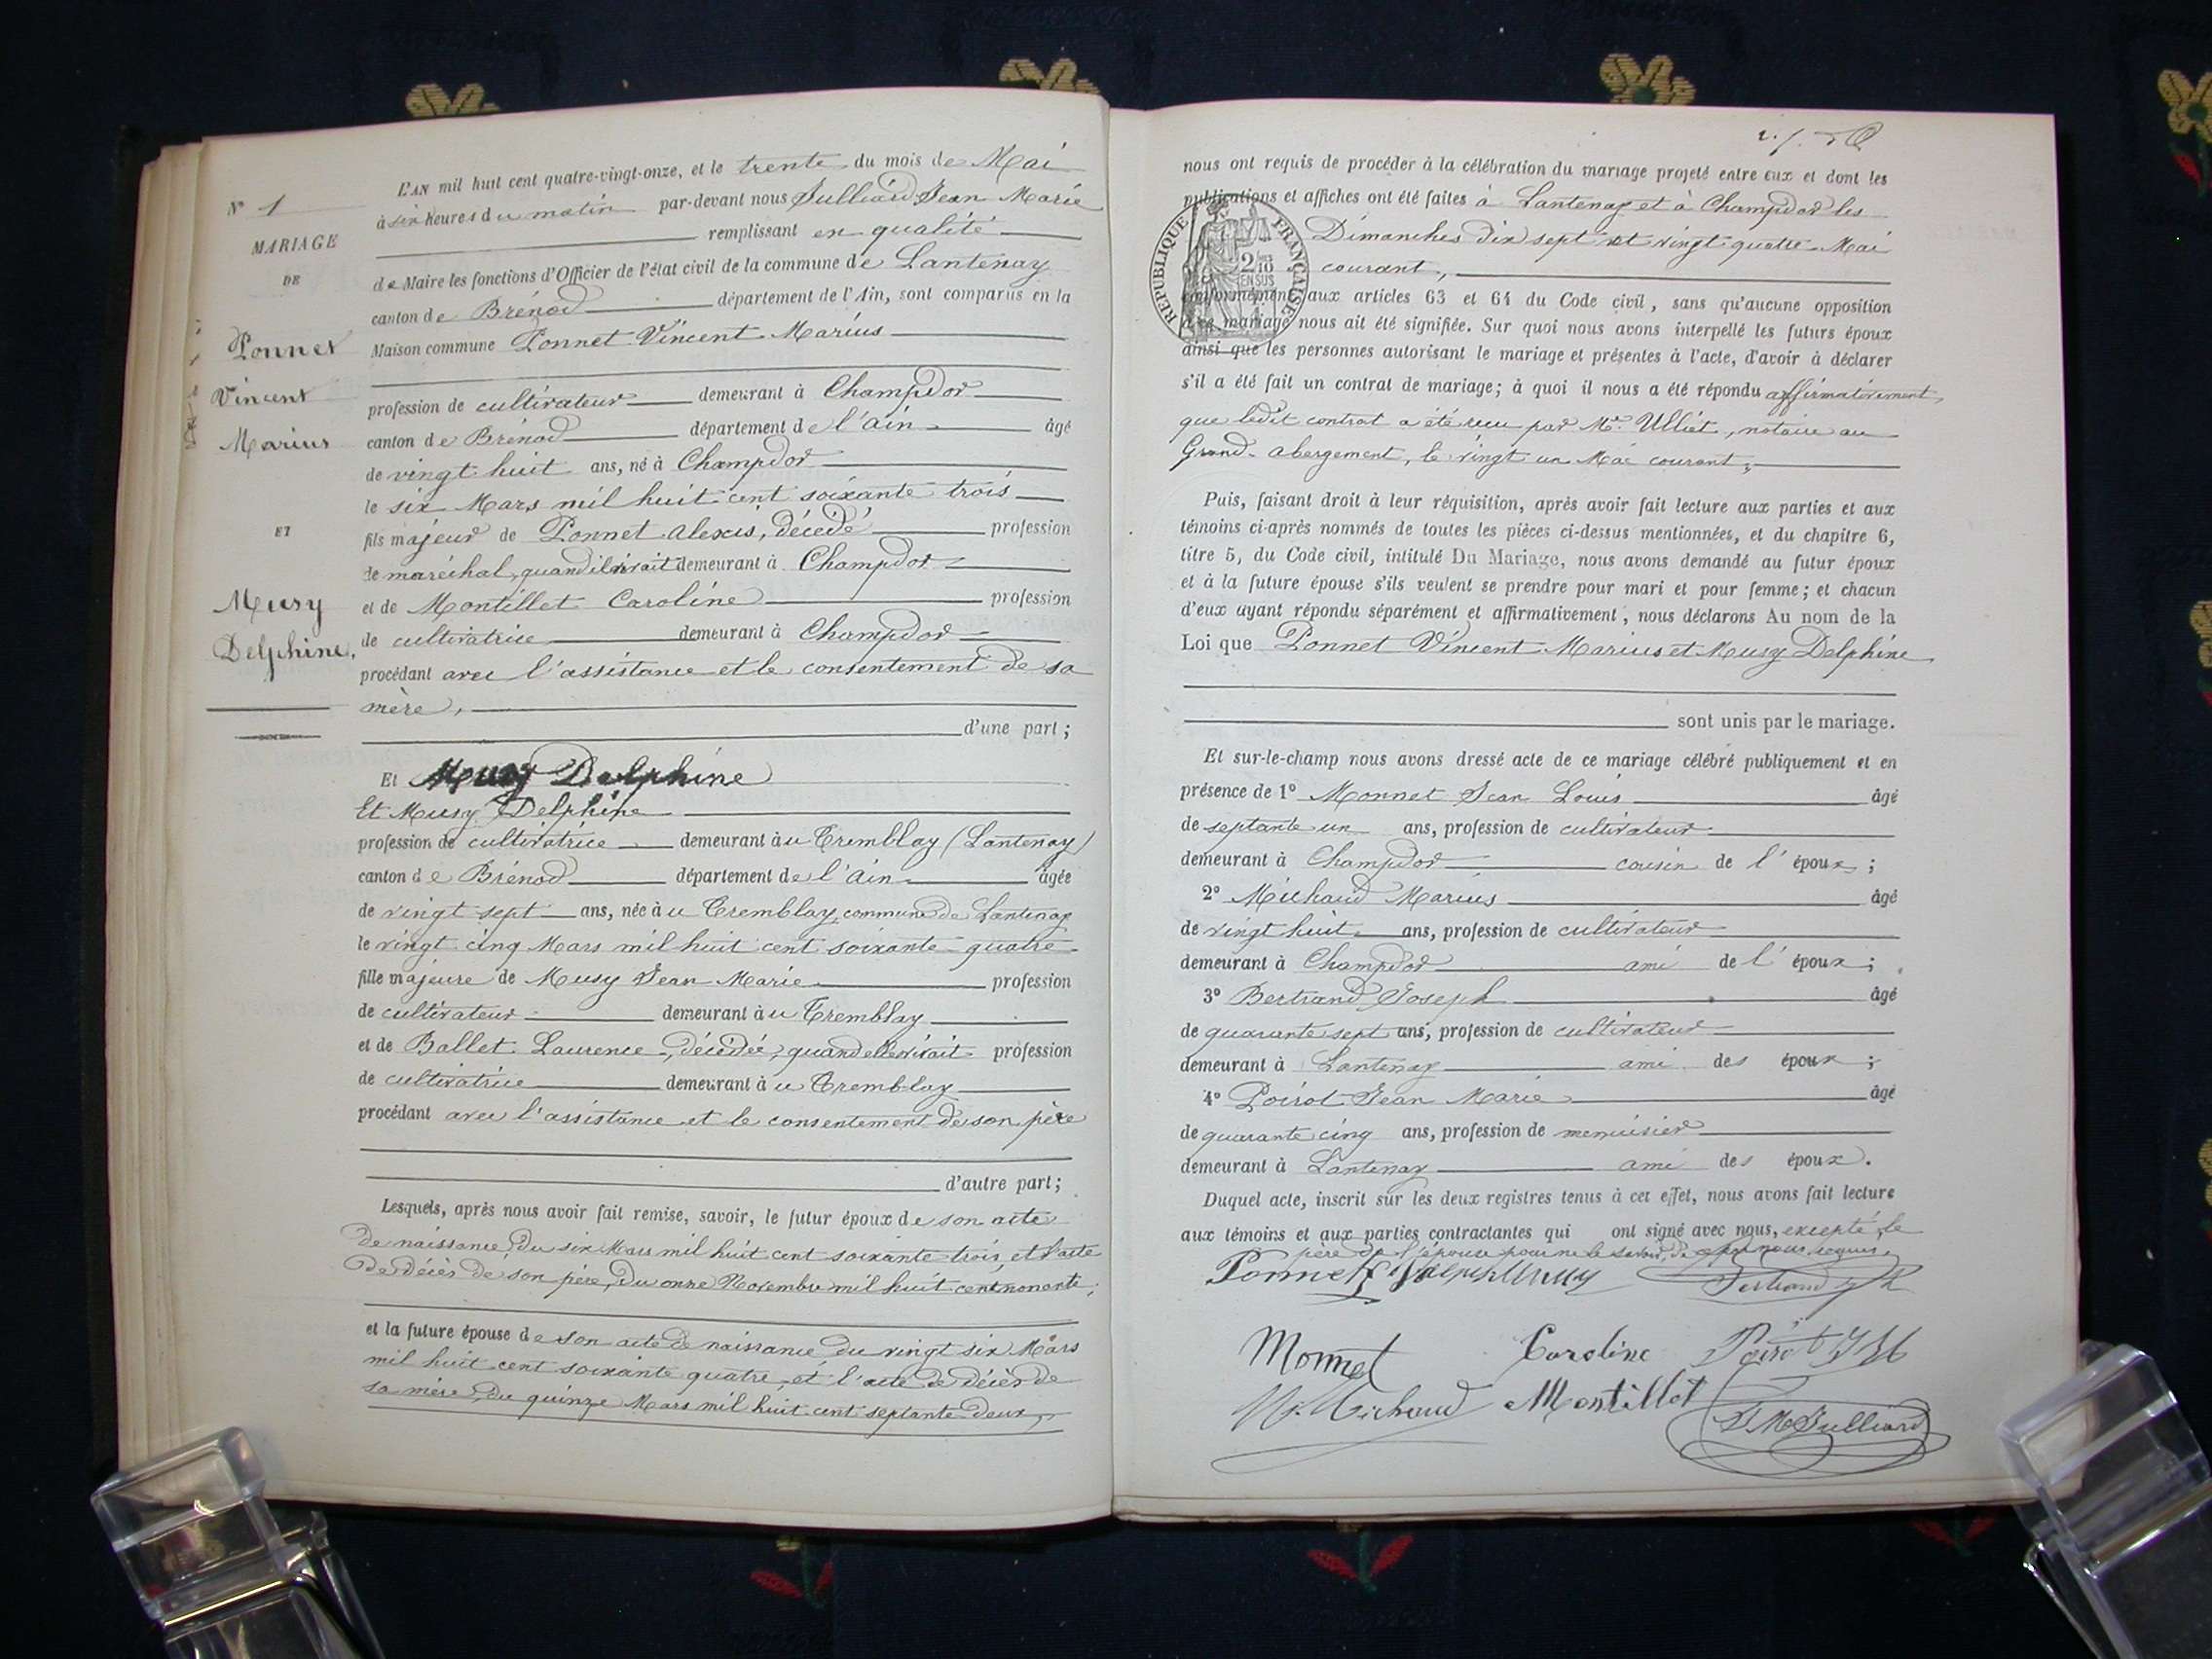 L'AN mil huit cent quatre-vingt-onze, et le trente du mois de Mai
à six heures du matin par-devant nous Julliard Jean Marie
remplissant en qualité
de Maire les fonctions d'Officier de l'état civil de la commune de Lantenay
canton de Brénod département de l'Ain, sont comparus en la
Maison commune Ponnet Vincent Marius
profession de cultivateur demeurant à Champdor
canton de Brénod département de l'ain âgé
de vingt huit ans, né à Champdor
le six Mars mil huit cent soixante trois
fils majeur de Ponnet Alexis, décédé profession
de maréchal, quand il vivait demeurant à Champdor
et de Montillet Caroline profession
de cultivatrice demeurant à Champdor
procédant avec l'assistance et le consentement de sa
mère,
d'une part ;
Nº 1
MARIAGE
DE
Ponnet
Vincent
Marius
ET
Musy
Delphine,
Et Musy Delphine
Et Musy Delphine
profession de cultivatrice demeurant à u Tremblay (Lantenay)
canton de Brénod département de l'ain âgée
de vingt sept ans, née à u Tremblay commune de Lantenay
le vingt cinq Mars mil huit cent soixante quatre
fille majeure de Musy Jean Marie profession
de cultivateur demeurant à u Tremblay
et de Ballet Laurence, décédée, quand elle vivait profession
de cultivatrice demeurant à u Tremblay
procédant avec l'assistance et le consentement de son père
d'autre part ;
Lesquels, après nous avoir fait remise, savoir, le futur époux de son acte
de naissance, du six Mars mil huit cent soixante trois, et l'acte
de décès de son père, du onze Novembre mil huit cent nonante ;
et la future épouse de son acte de naissance du vingt six Mars
mil huit cent soixante quatre, et l'acte de décès de
sa mère, du quinze Mars mil huit cent septante deux,
nous ont requis de procéder à la célébration du mariage projeté entre eux et dont les
publications et affiches ont été faites à Lantenay et à Champdor les
Dimanches dix sept et vingt quatre Mai
courant,
REPUBLIQUE FRANÇAISE
2/10
EN SUS
conformément aux articles 63 et 64 du Code civil, sans qu'aucune opposition
à ce mariage nous ait été signifiée. Sur quoi nous avons interpellé les futurs époux
ainsi que les personnes autorisant le mariage et présentes à l'acte, d'avoir à déclarer
s'il a été fait un contrat de mariage; à quoi il nous a été répondu affirmativement,
que ledit contrat a été reçu par Me. Ulliet, notaire au
Grand-abergement, le vingt un Mai courant ;
Puis, faisant droit à leur réquisition, après avoir fait lecture aux parties et aux
témoins ci-après nommés de toutes les pièces ci-dessus mentionnées, et du chapitre 6,
titre 5, du Code civil, intitulé Du Mariage, nous avons demandé au futur époux
et à la future épouse s'ils veulent se prendre pour mari et pour femme ; et chacun
d'eux ayant répondu séparément et affirmativement, nous déclarons Au nom de la
Loi que Ponnet Vincent Marius et Musy Delphine
sont unis par le mariage.
Et sur-le-champ nous avons dressé acte de ce mariage célébré publiquement et en
présence de 1º Monnet Jean Louis âgé
de septante un ans, profession de cultivateur
demeurant à Champdor cousin de l'époux ;
2º Michaud Marius âgé
de vingt huit ans, profession de cultivateur
demeurant à Champdor ami de l'époux ;
3º Bertrand Joseph âgé
de quarante sept ans, profession de cultivateur
demeurant à Lantenay ami des époux ;
4º Poirot Jean Marie âgé
de quarante cinq ans, profession de menuisier
demeurant à Lantenay ami des époux.
Duquel acte, inscrit sur les deux registres tenus à cet effet, nous avons fait lecture
aux témoins et aux parties contractantes qui ont signé avec nous, excepté le
père de l'épouse pour ne le savoir, de ce par nous requis.
Ponnet Delphine Musy Bertrand
Monnet Caroline Poirot J M
M. Michaud Montillet
J M Julliard